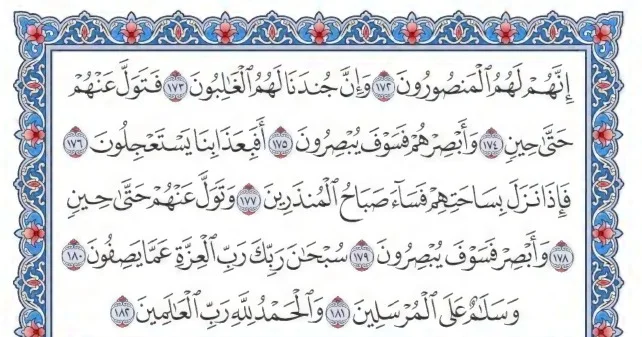 إِنَّهُمْ لَهُمُ ٱلْمَنصُورُونَ ١٧٢ وَإِنَّ جُندَنَا لَهُمُ ٱلْغَٰلِبُونَ ١٧٣ فَتَوَلَّ عَنْهُمْ
حَتَّىٰ حِينٍ ١٧٤ وَأَبْصِرْهُمْ فَسَوْفَ يُبْصِرُونَ ١٧٥ أَفَبِعَذَابِنَا يَسْتَعْجِلُونَ ١٧٦
فَإِذَا نَزَلَ بِسَاحَتِهِمْ فَسَآءَ صَبَاحُ ٱلْمُنذَرِينَ ١٧٧ وَتَوَلَّ عَنْهُمْ حَتَّىٰ حِينٍ
١٧٨ وَأَبْصِرْ فَسَوْفَ يُبْصِرُونَ ١٧٩ سُبْحَٰنَ رَبِّكَ رَبِّ ٱلْعِزَّةِ عَمَّا يَصِفُونَ ١٨٠
وَسَلَٰمٌ عَلَى ٱلْمُرْسَلِينَ ١٨١ وَٱلْحَمْدُ لِلَّهِ رَبِّ ٱلْعَٰلَمِينَ ١٨٢